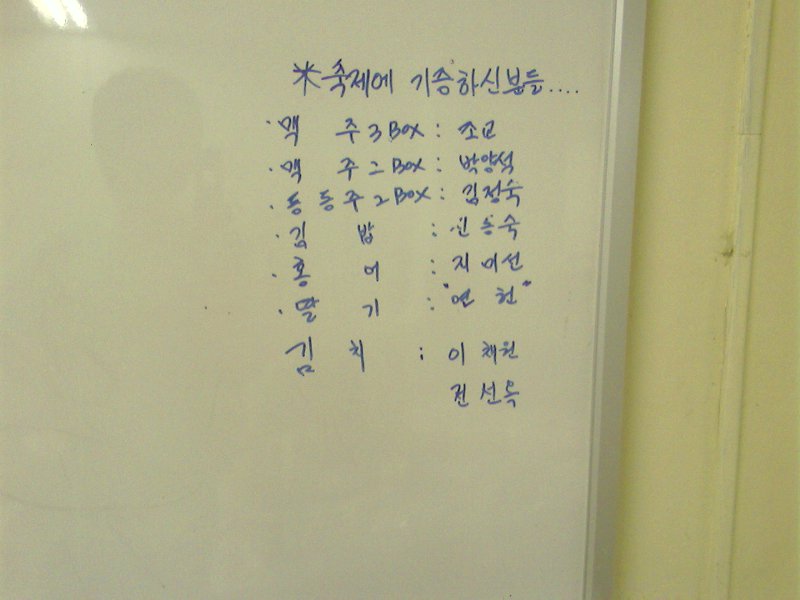 ※ 축제에 기증하신분들....
· 맥 주 3 Box : 조교
· 맥 주 2 Box : 박양석
· 동 동 주 2 Box : 김정숙
· 김 밥 : 신승숙
· 홍 어 : 지미선
· 딸 기 : "연 헌"
김 치 : 이 채원
전 선옥